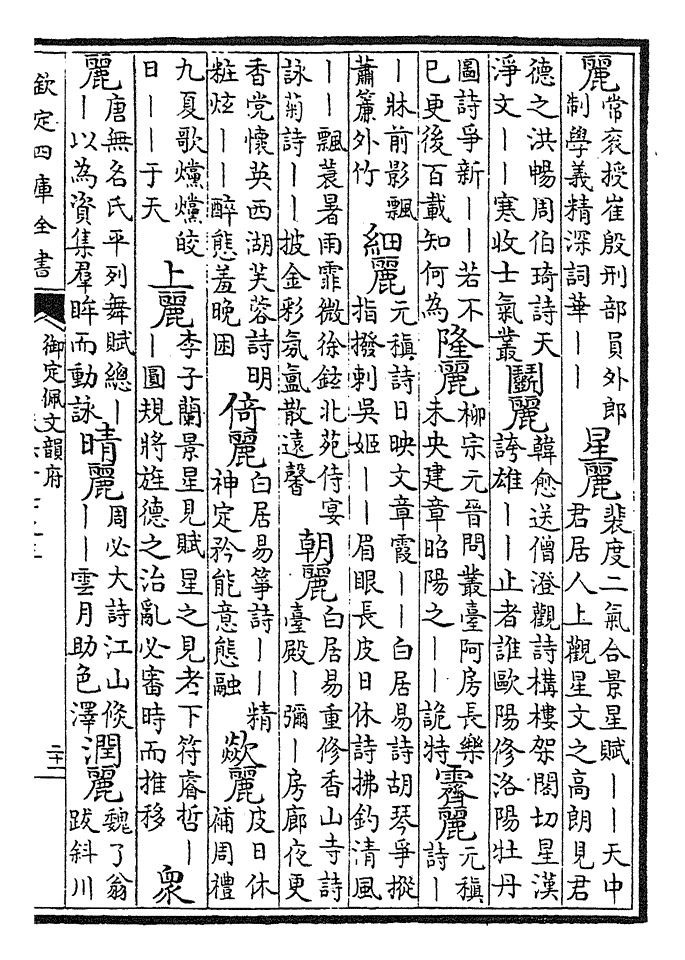 麗常衮授崔殷刑部員外郎制學義精深詞華——星麗裴度二氣合景星賦——天中君居人上觀星文之高朗見君
德之洪暢周伯琦詩天淨文——寒收士氣叢鬭麗韓愈送僧澄觀詩構樓架閣切星漢誇雄——止者誰歐陽修洛陽牡丹
圖詩爭新——若不已更後百載知何為隆麗柳宗元晉問叢臺阿房長樂未央建章昭陽之——詭特霽麗元稹詩—
—牀前影飄蕭簾外竹細麗元稹詩日映文章霞——白居易詩胡琴爭摐指撥剌吳姬——眉眼長皮日休詩拂釣清風
——飄蓑暑雨霏微徐鉉北苑侍宴詠菊詩——披金彩氛氳散遠馨朝麗白居易重修香山寺詩臺殿—彌—房廊夜更
香党懷英西湖芙蓉詩明粧炫——醉態羞晚困倚麗白居易箏詩——精神定矜能意態融歘麗皮日休補周禮
九夏歌爣爣皎日——于天上麗李子蘭景星見賦星之見者下符睿哲——圓規將旌德之治亂必審時而推移衆
麗唐無名氏平列舞賦總——以為資集羣眸而動詠晴麗周必大詩江山倐——雲月助色澤潤麗魏了翁跋斜川
欽定四庫全書
御定佩文韻府
二十一